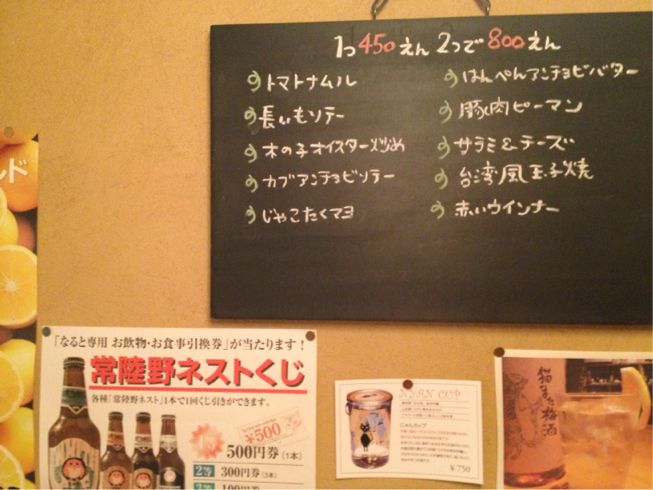 1つ450えん 2つで800えん
トマトナムル
長いもソテー
木の子オイスター炒め
カブアンチョビソテー
じゃこたくマヨ
はんぺんアンチョビバター
豚肉ピーマン
サラミ&チーズ
台湾風玉子焼
赤いウインナー
ルド
「なると専用 お飲物・お食事引換券」が当たります！
常陸野ネストくじ
各種「常陸野ネスト」1本で1回くじ引ができます。
¥500
500円券(1本)
2等 300円券(3本)
3等 100円券
NYAN CUP
にゃんカップ
¥750
猫また梅酒